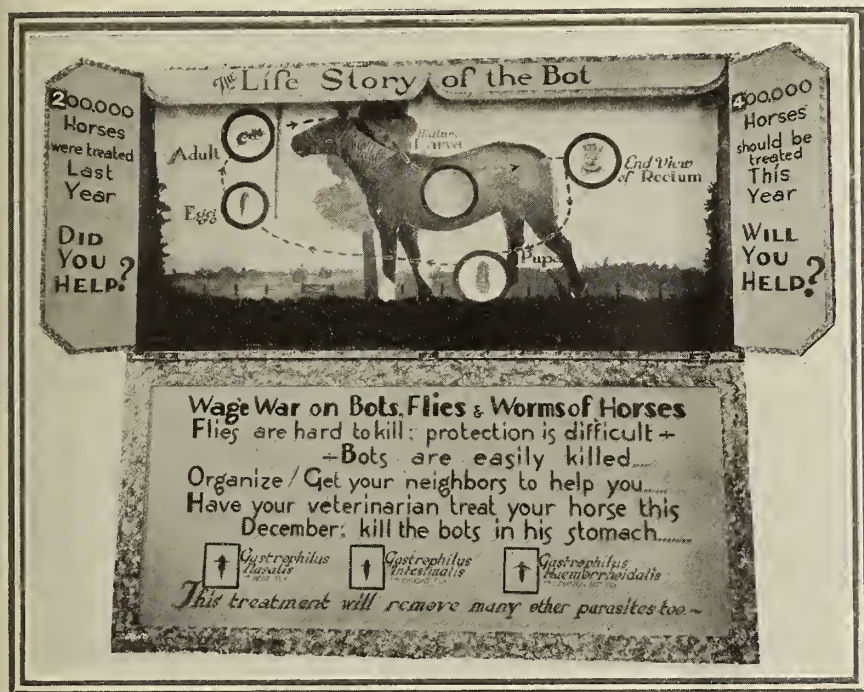 The Life Story of the Bot
200,000
Horses
were treated
Last
Year
DID
YOU
HELP?
Adult
Egg
Larva
End View
of Rectum
Pupa
400,000
Horses
should be
treated
This
Year
WILL
YOU
HELP?
Wage War on Bots, Flies & Worms of Horses
Flies are hard to kill; protection is difficult ÷
÷ Bots are easily killed......
Organize / Get your neighbors to help you......
Have your veterinarian treat your horse this
December; kill the bots in his stomach.......
Gastrophilus
Nasalis
Gastrophilus
Intestinalis
Gastrophilus
Haemorrhoidalis
This treatment will remove many other parasites too ~